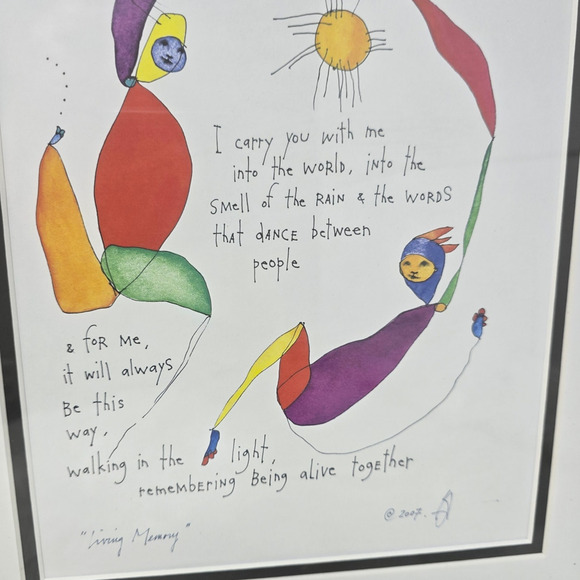 I carry you with me
into the WORLD, into the
smell of the RAIN & the WORDS
that DANCE between
people
& for me,
it will always
Be this
way,
walking in the light,
remembering Being alive together
© 2007.
"Living Memory"